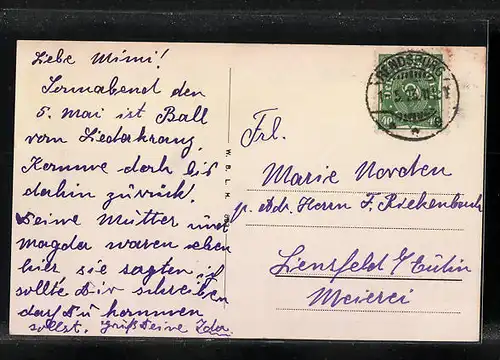 Liebe Mimi!
Sonnabend den
5. Mai ist Ball
vom Liederkranz,
Komme doch bis
dahin zurück!
Deine Mutter und
Magda waren eben
hier sie sagten ich
sollte Dir schreiben
daß Du kommen
sollst. Gruß Deine Ida
W.B.L.K.
RENDSBURG
40
40
Frl.
Marie Norden
p. Adr. Herrn F. Riekenbuch
Liensfeld b/ Eutin
Meierei